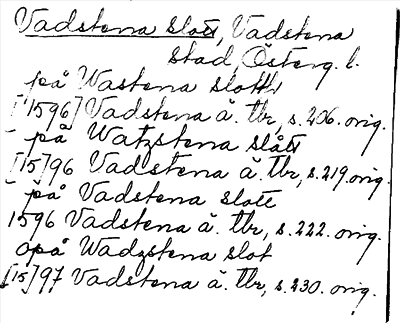 Vadstena slott, Vadstena
stad, Österg. l.
på Wastena slotth
[1596] Vadstena ä. tbr, s. 206. orig.
på Watzstena slått
[15]96 Vadstena ä. tbr, s. 219. orig.
på Vadstena slott
1596 Vadstena ä. tbr, s. 222. orig.
opå Wadzstena slot
[15]97 Vadstena ä. tbr, s. 230. orig.